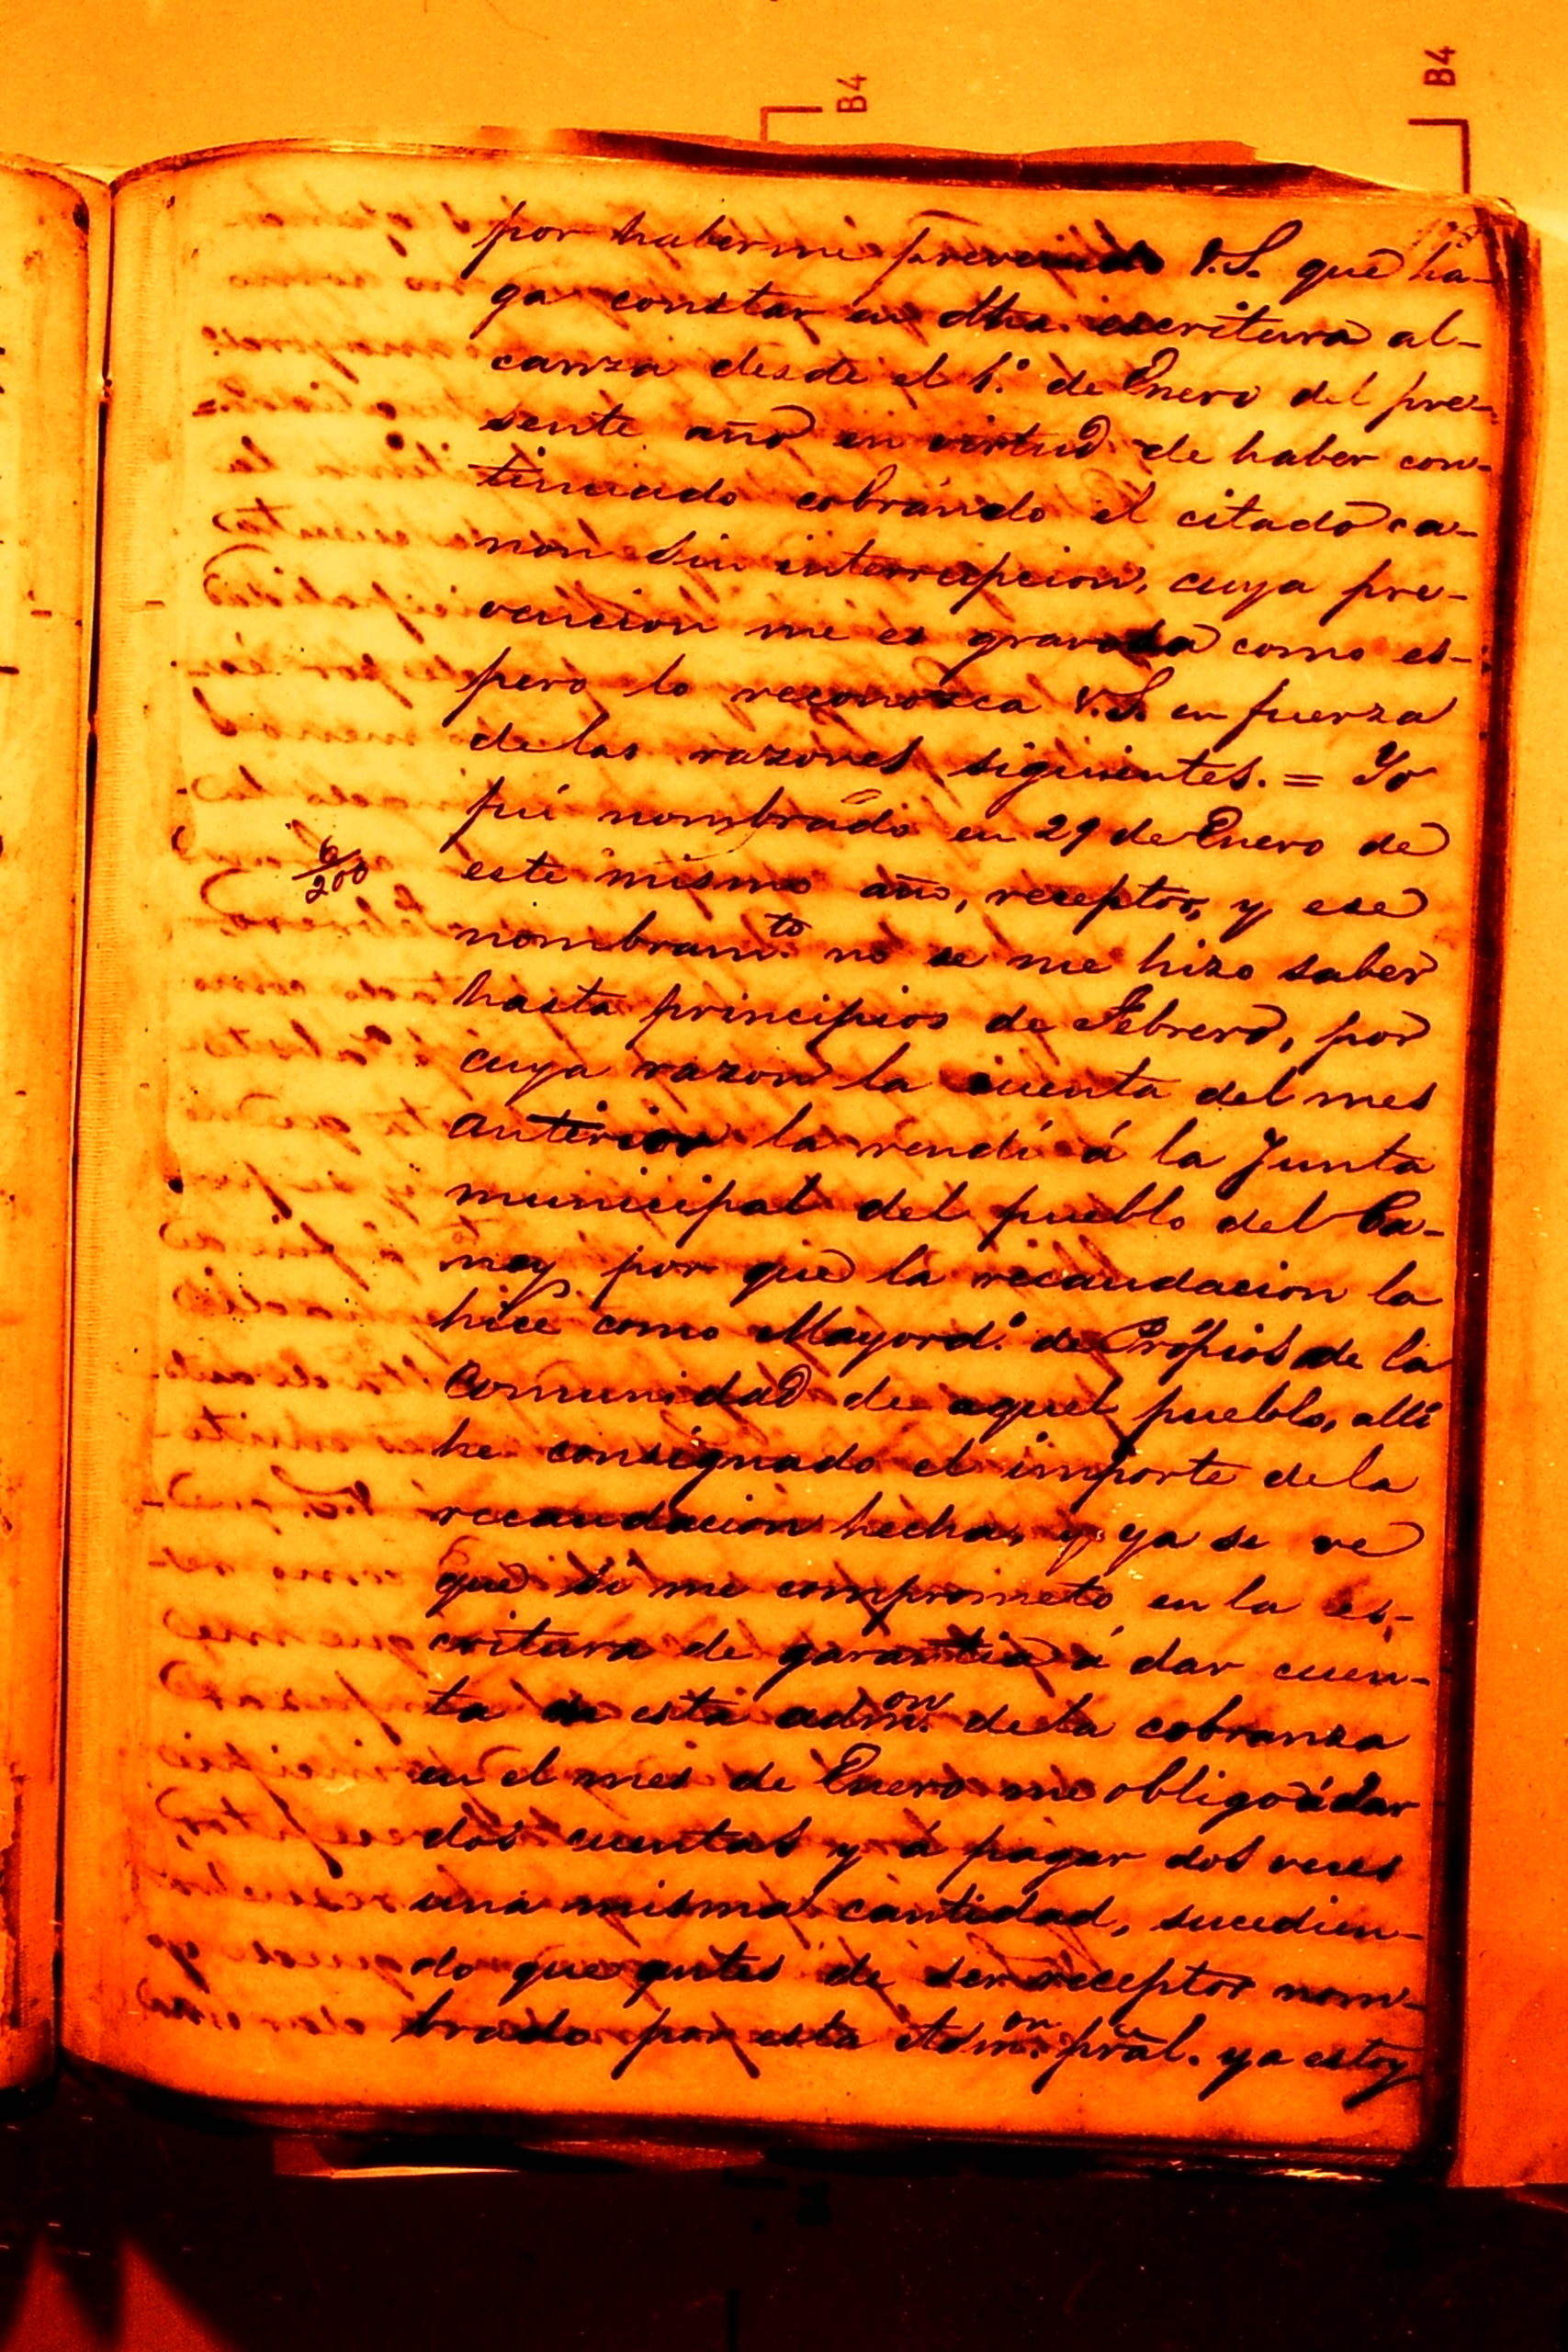 B4
B4
por haberme prevenido V.S. que ha-
ga constar en dha. escritura al-
canza desde el 1.º de Enero del pre-
sente año en virtud de haber con-
tinuado cobrando el citado ca-
non sin interrupcion, cuya pre-
vencion me es gravosa como es-
pero lo reconosca V.S. en fuerza
de las razones siguientes. = Yo
fuí nombrado en 29 de Enero de
este mismo año, receptor, y ese
6/200
nombram.to no se me hizo saber
hasta principios de Febrero, por
cuya razon la cuenta del mes
anterior la rendí á la Junta
municipal del pueblo del Ca-
ney por que la recaudacion la
hice como Mayord.º de Própios de la
Comunidad de aquel pueblo, allí
he consignado el importe de la
recaudacion hecha, y ya se ve
que si me comprometo en la es-
critura de garantia á dar cuen-
ta á esta adm.on de la cobranza
en el mes de Enero me obligo á dar
dos cuentas y á pagar dos veces
una misma cantidad, sucedien-
do que antes de ser receptor nom-
brado por esta Adm.on prãl. ya estoy